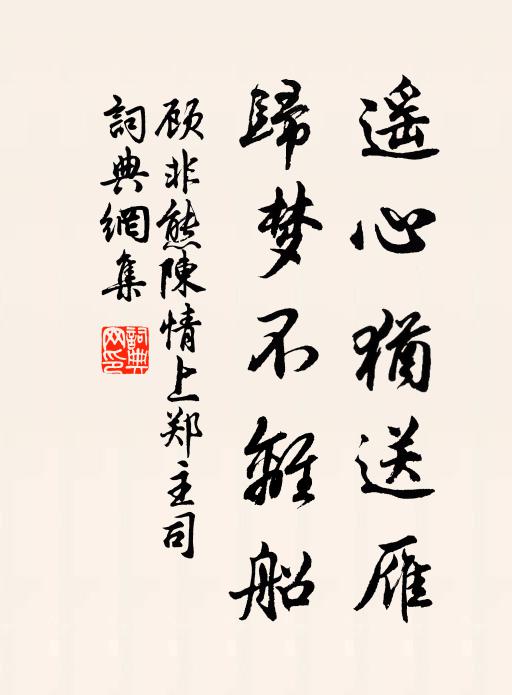 遥心猶送雁
歸梦不離船
顾非熊陳情上郑主司
詞典網集
詞典
网印